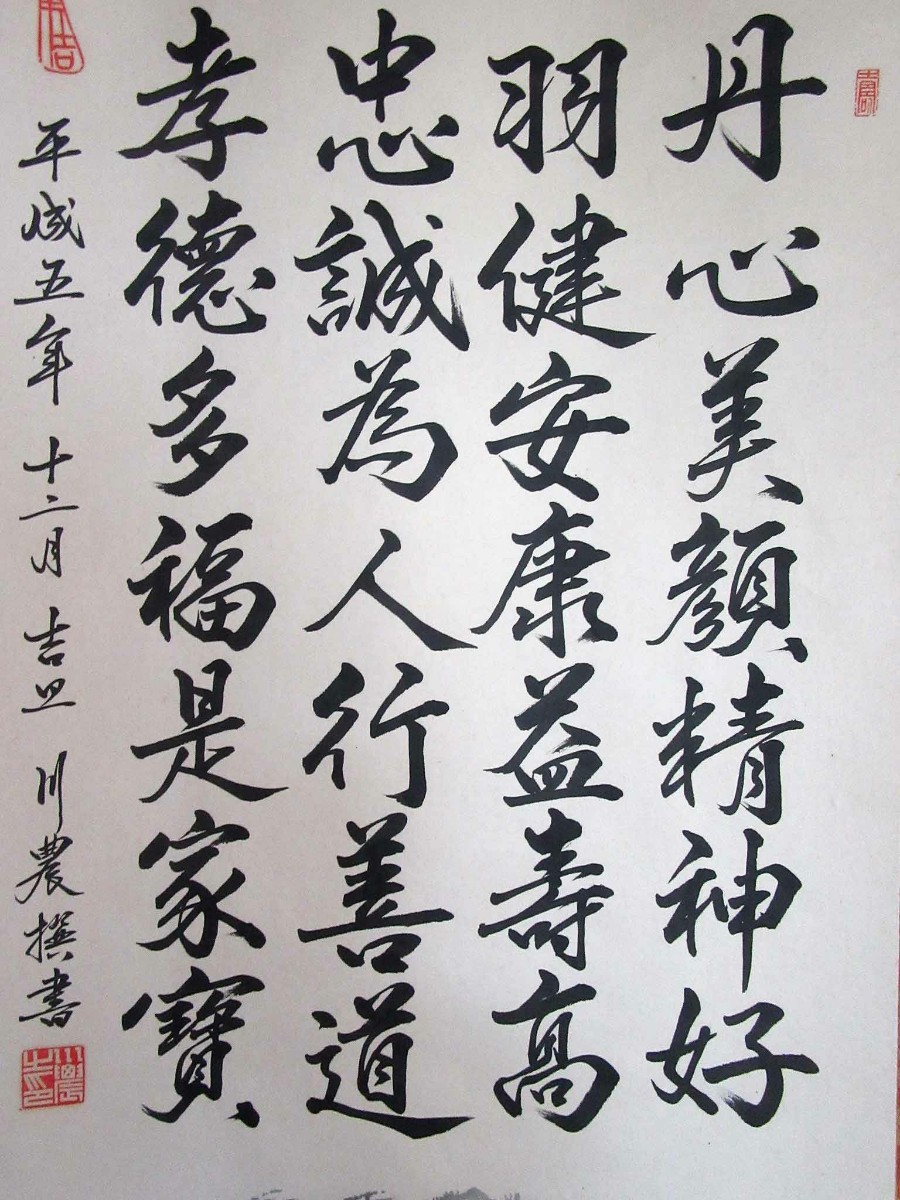 丹心美顔精神好
羽健安康益壽高
忠誠為人行善道
孝德多福是家寶
平成五年十二月吉旦川農撰書